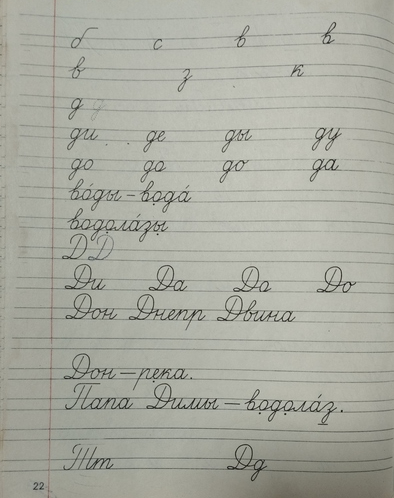 б с в в
в з к
д д
ди де ды ду
до до до да
во́ды – вода́
водола́зы
Д Д
Ди Да До До
Дон Днепр Двина
Дон – река.
Папа Димы – водола́з.
Тт Дд
22